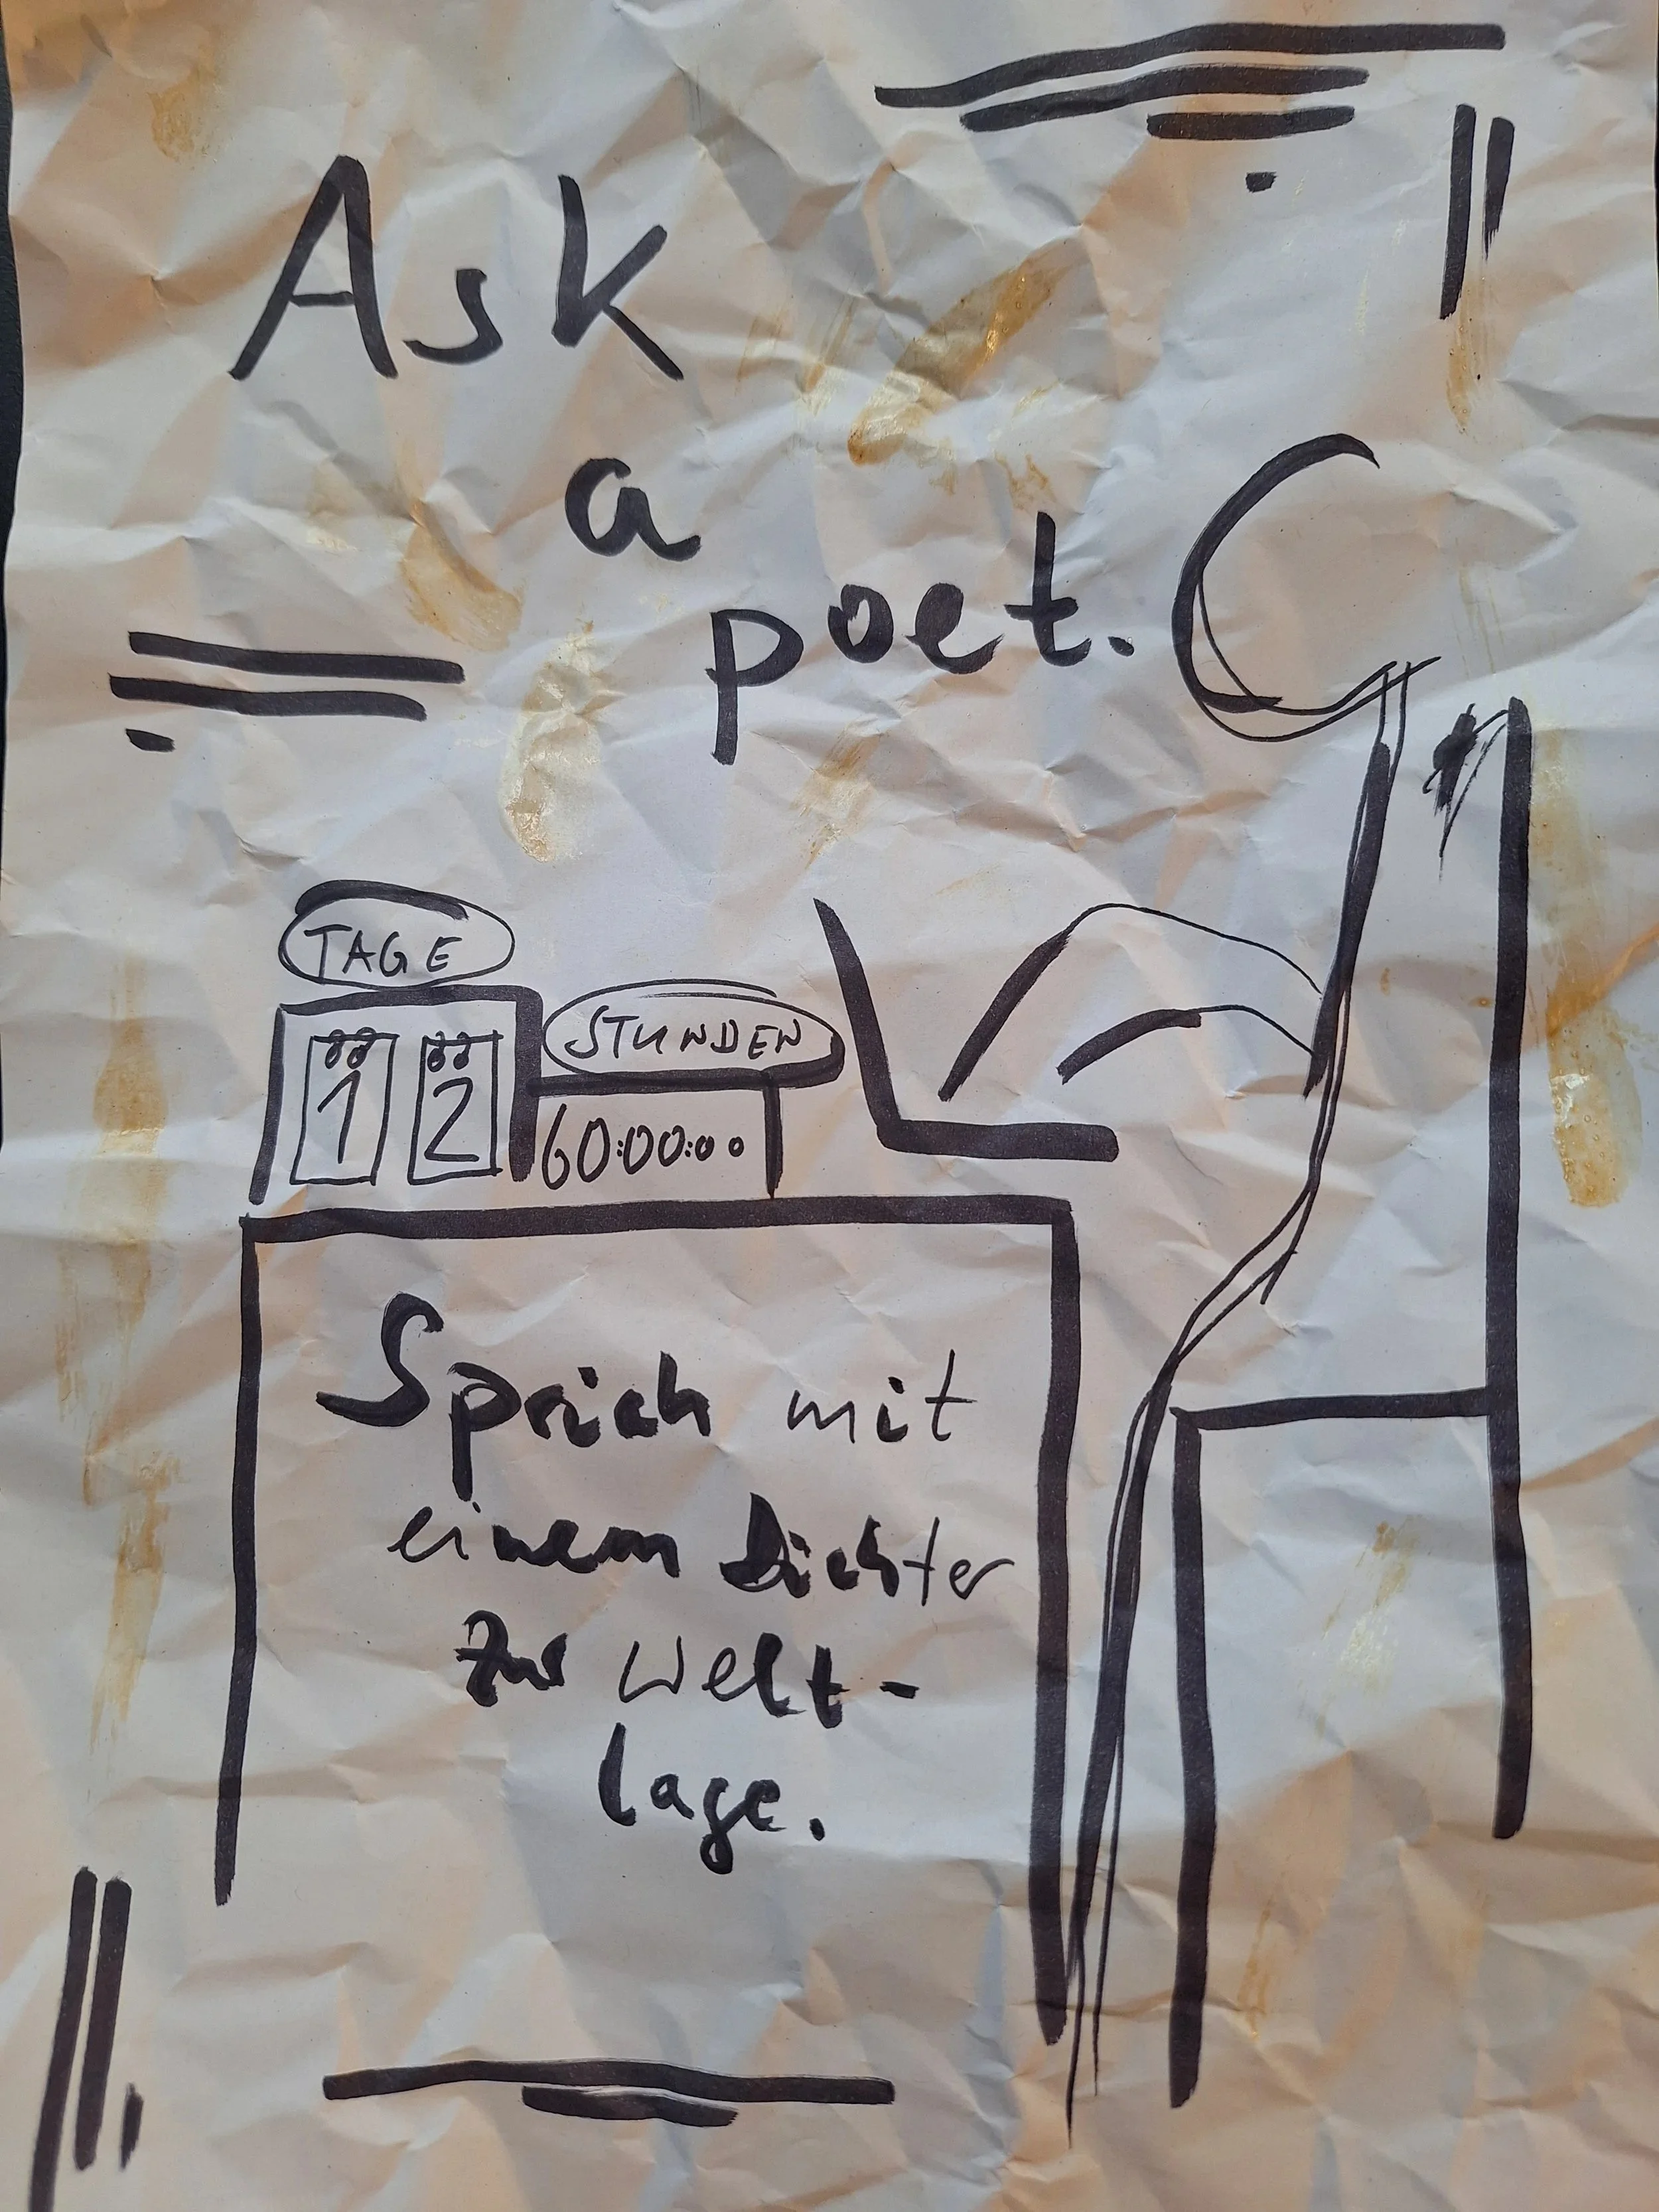 Ask
a
poet.
TAGE
STUNDEN
1 2
60:00:00
Sprich mit
einem Dichter
zur Welt-
lage.